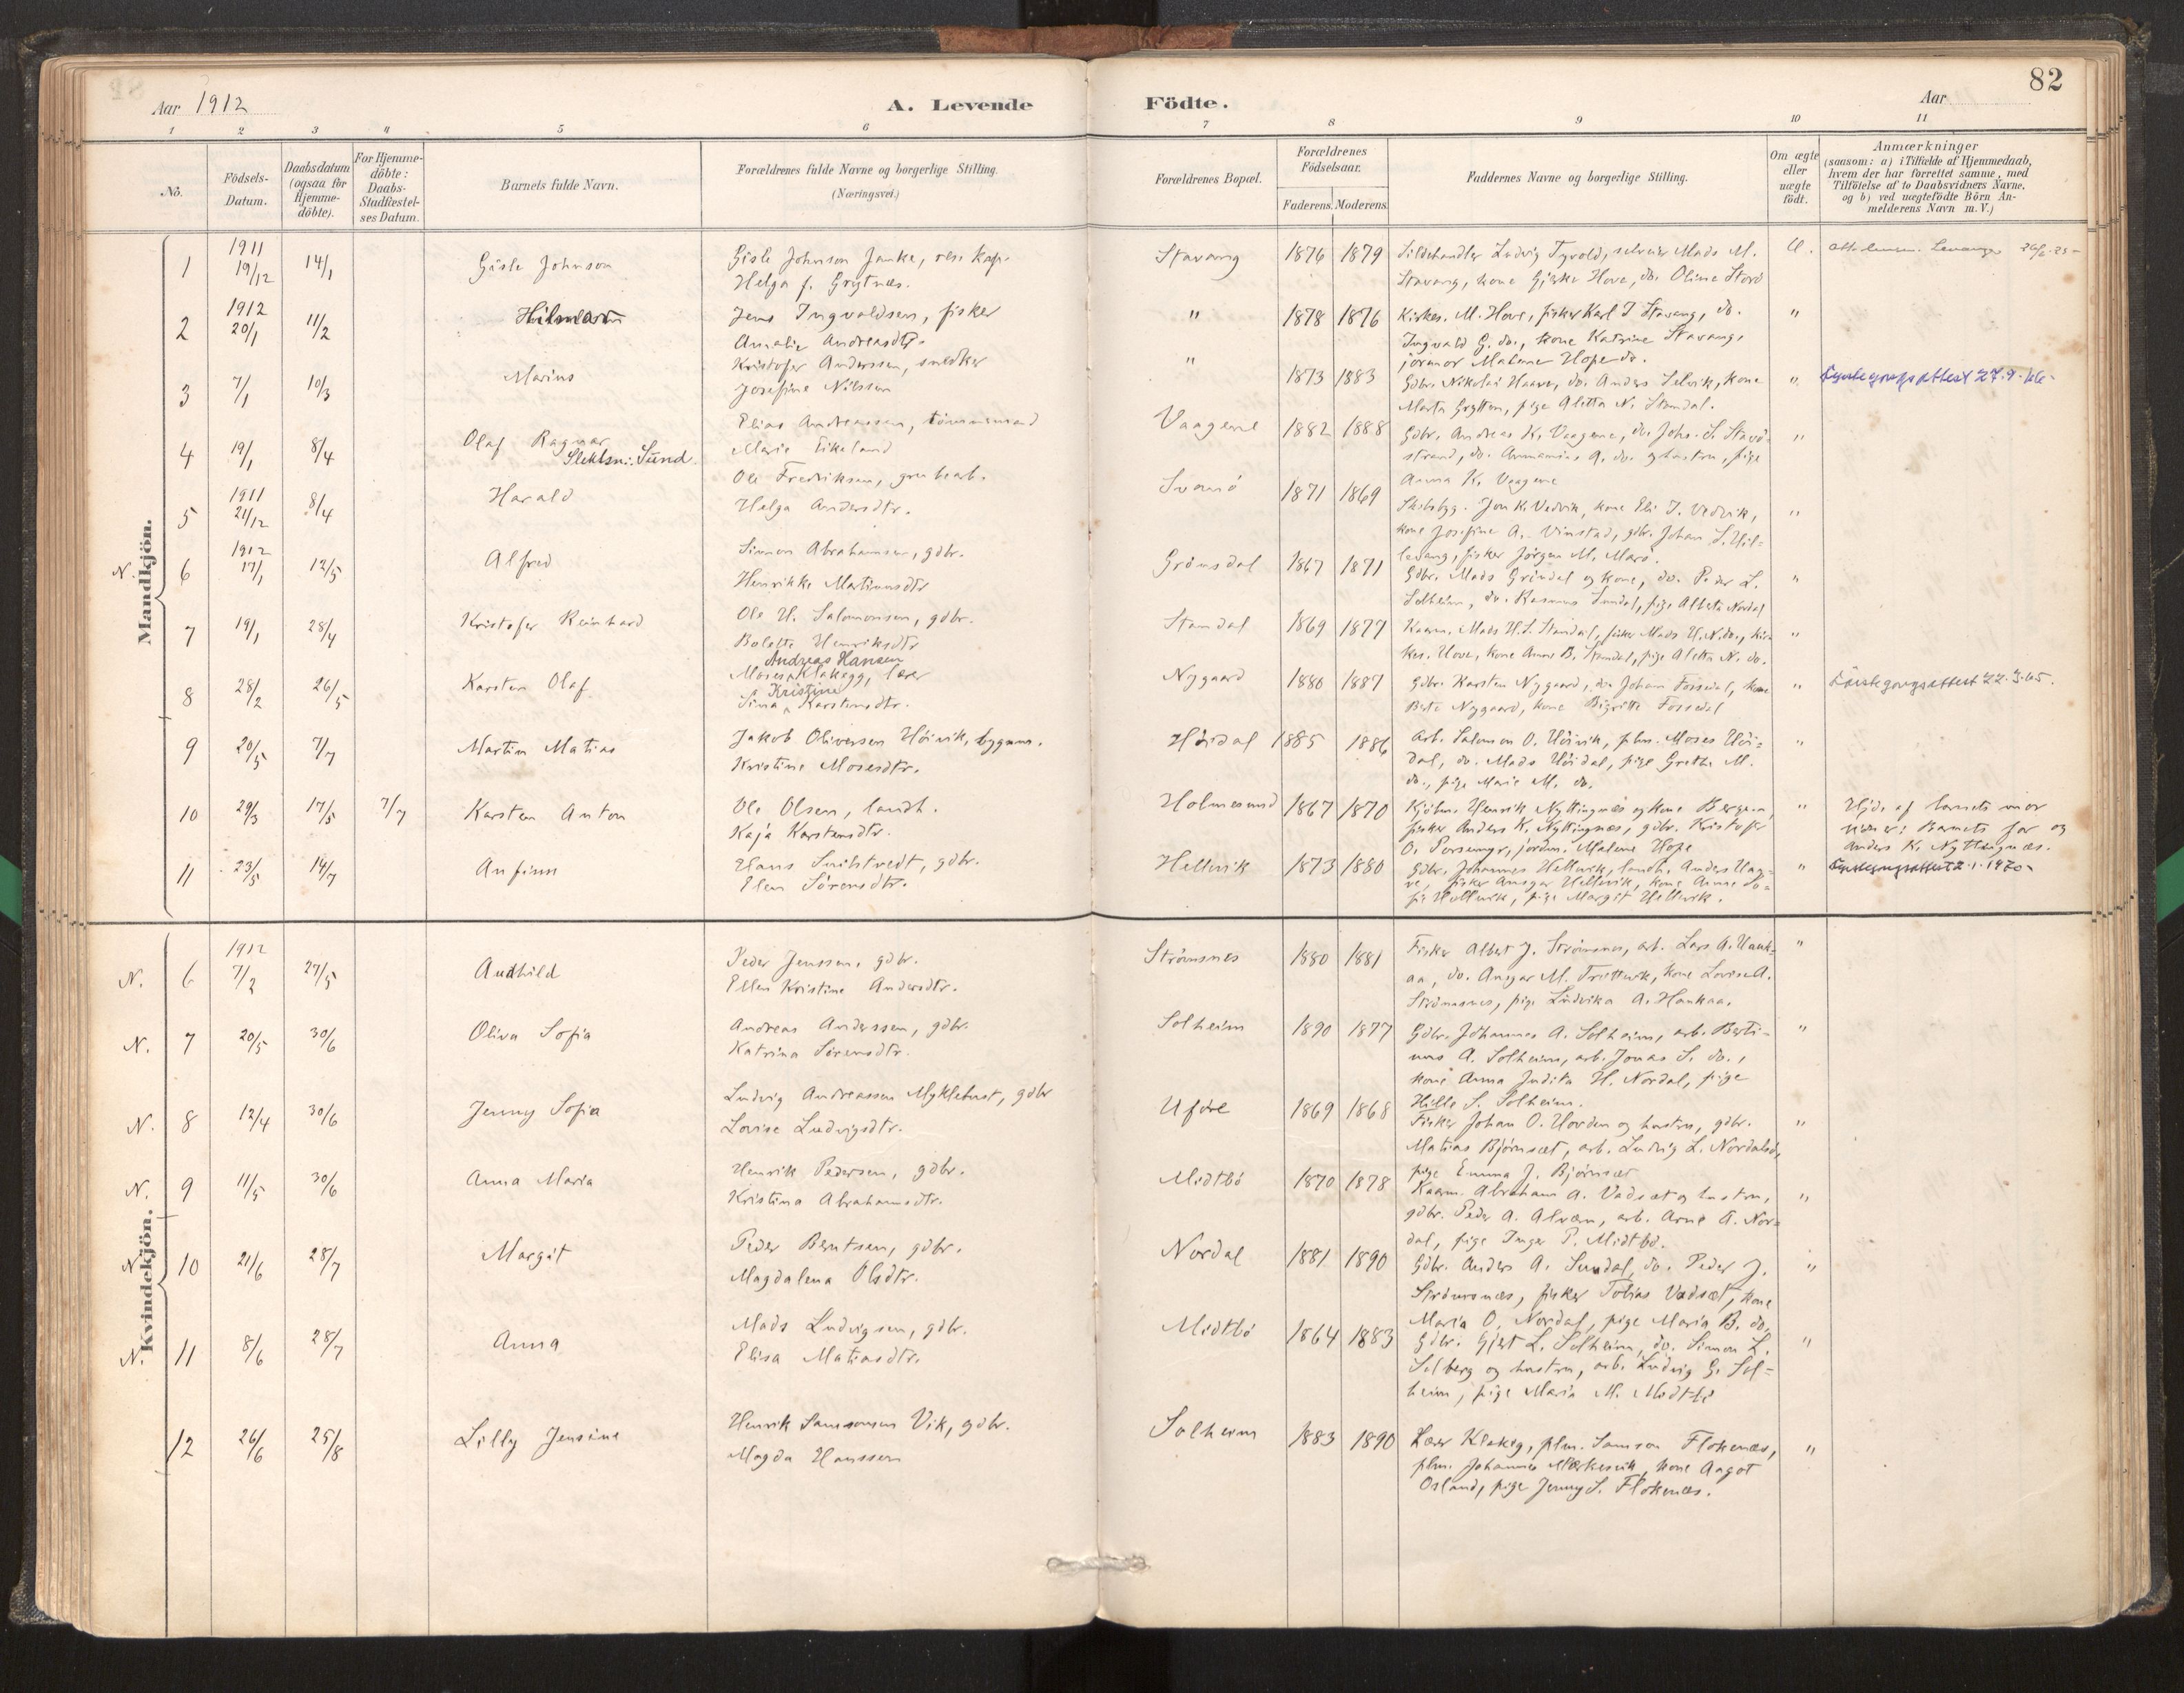 82
Aar 1912
A. Levende
Födte.
Aar
1 2 3 4 5 6 7 8 9 10 11
No.
Födsels-Datum.
Daabsdatum (ogsaa for Hjemme-döbte).
For Hjemme-döbte: Daabs-Stadfæstel-ses Datum.
Barnets fulde Navn.
Forældrenes fulde Navne og borgerlige Stilling.
(Næringsvei.)
Forældrenes Bopæl.
Forældrenes Födselsaar.
Faderens. Moderens.
Faddernes Navne og borgerlige Stilling.
Om ægte eller uægte födt.
Anmærkninger
(saasom: a) i Tilfælde af Hjemmedaab,
hvem der har forrettet samme, med
Tilföielse af to Daabsvidners Navne,
og b) ved uægtefödte Börn An-
melderens Navn m. V.)
Mandkjön.
1 1911 19/12 14/1 Gisle Johnson
Gisle Johnson
Helga f. Grytnæs.
Stavang 1876 1879
Sildehandler Ludvig
Stavang, kone Gjerke Hove, do. Oline
2 1912 20/1 11/2 Hilmar
Jens Ingvaldsen, fisker
Amalie Andreasdtr.
" 1878 1876
Kirkes. M. Hove, fisker Karl J Stavang, do.
Ingvald G. do., kone Katrine Stavang,
jormor Malene Hope do.
"
3 7/1 10/3 Marius
Kristofer Anderssen, snedker
Josefine Nilssen
" 1873 1883
Gdbr. Nikolai Haave, do. Anders Selvik, kone
Marta Grytten, pige Aletta N. Standal.
"
27.9.66-
4 19/1 8/4 Olaf Ragnar
Slektsn: Sund
Elias Andreassen, tömmermand
Marie Eikeland
Vaagene 1882 1888
Gdbr. Andreas K. Vaagene, do. Johs. S. Stavö-
strand, do. A. do. og hustru, pige
Anna K. Vaagene
"
5 1911 21/12 8/4 Harald
Ole Fredriksen, grubearb.
Helga Andersdtr.
Svanö 1871 1869
Skibsbyg. Jon K. Vedvik, kone Eli J. Vedvik,
kone Josefine A. Vinstad, gdbr. Johan S.
fisker Jörgen M.
"
N. 6 1912 17/1 12/5 Alfred
Simon Abrahamsen, gdbr.
Henrikke Martinusdtr
Gröndal 1867 1871
Gdbr. Mads Gröndal og kone, do. Peder L.
Solheim, do. Rasmus Sundal, pige Alberta Nordal
"
7 19/1 28/4 Kristofer Reinhard
Ole H. Salomonsen, gdbr.
Bolette Henriksdtr
Standal 1869 1877
Mads H.S. Standal, fisker Mads H.N. do., kir-
kes. Hove, kone Anne B. Standal, pige Aletta N. do.
"
8 28/2 26/5 Karsten Olaf
Andreas Hansen
Moses Klakegg, lærer
Kristine
Sina Karstensdtr.
Nygaard 1880 1887
Gdbr. Karsten Nygaard, do. Johan Fossedal, kone
Berte Nygaard, kone Birgitte Fossedal
"
22.3.65.
9 20/5 7/7 Martin Matias
Jakob Oliversen Höivik, bygnm.
Kristine Mosesdtr.
Höidal 1885 1886
Arb. Salomon O. Höivik, plm. Moses Höi-
dal, do. Mads Höidal, pige Grethe M.
do., pige Marie M. do.
"
10 29/3 17/5 7/7 Karsten Anton
Ole Olsen, landh.
Kaja Karstensdtr.
Holmesund 1867 1870
Kjöbm. Henrik Nyttingnæs og kone Bergen,
fisker Anders K. Nyttingnæs, gdbr. Kristofer
O. jordm. Malene Hope
"
Hjd. af barnets mor
Vidner: Barnets far og
Anders K. Nyttingnæs.
11 23/5 14/7 Anfinn
Hans gdbr.
Elen Sörensdtr.
Hellevik 1873 1880
Gdbr. Johannes Hellevik, landh. Anders
fisker Ansgar Hellevik, kone Anne So-
fie Hellevik, pige Margit Hellevik.
"
2.1.1970
Kvindekjön.
N. 6 1912 7/2 27/5 Audhild
Peder Jenssen, gdbr.
Ellen Kristine Andersdtr.
Strömsnes 1880 1881
Fisker Albert J. Strömsnes, arb. Lars A. Hauk-
aa, do. Ansgar M. Trættevik, kone Lovise A.
Strömsnes, pige Ludvika A. Haukaa.
"
N. 7 20/5 30/6 Oliva Sofia
Andreas Anderssen, gdbr.
Katrina Sörensdtr.
Solheim 1890 1877
Gdbr. Johannes A. Solheim, arb. Berti-
nus A. Solheim, arb. Jonas S. do.,
kone Anna Judita H. Nordal, pige
Hille S. Solheim.
"
N. 8 12/4 30/6 Jenny Sofia
Ludvig Andreassen Myklebust, gdbr
Lovise Ludvigsdtr.
Uföre 1869 1868
Fisker Johan O. Hovden og hustru, gdbr.
Matias Björnset, arb. Ludvig L. Nordalsö,
pige Emma J. Björnset
"
N. 9 11/5 30/6 Anna Maria
Henrik Pedersen, gdbr.
Kristina Abrahamsdtr.
Midtbö 1870 1878
Kaarm. Abraham A. Vadset og hustru,
gdbr. Peder A. Alværn, arb. Arne A. Nor-
dal, pige Inger P. Midtbö.
"
N. 10 21/6 28/7 Margit
Peder Berntsen, gdbr.
Magdalena Olsdtr.
Nordal 1881 1890
Gdbr. Anders A. Sundal, do. Peder J.
Strömsnæs, fisker Tobias Vadset, kone
Maria O. Nordal, pige Maria B. do.
"
N. 11 8/6 28/7 Anna
Mads Ludvigsen, gdbr.
Elisa Matiasdtr.
Midtbö 1864 1883
Gdbr. Gjert L. Solheim, do. Simon L.
Solberg og hustru, arb. Ludvig G. Sol-
heim, pige Maria M. Midtbö
"
12 26/6 25/8 Lilly Jensine
Henrik Samsonsen Vik, gdbr.
Magda Hanssen
Solheim 1883 1890
Lærer Klakeg, plm. Samson Flokenæs,
plm. Johannes Mærkesvik, kone Aagot
Osland, pige Jenny S. Flokenæs.
"